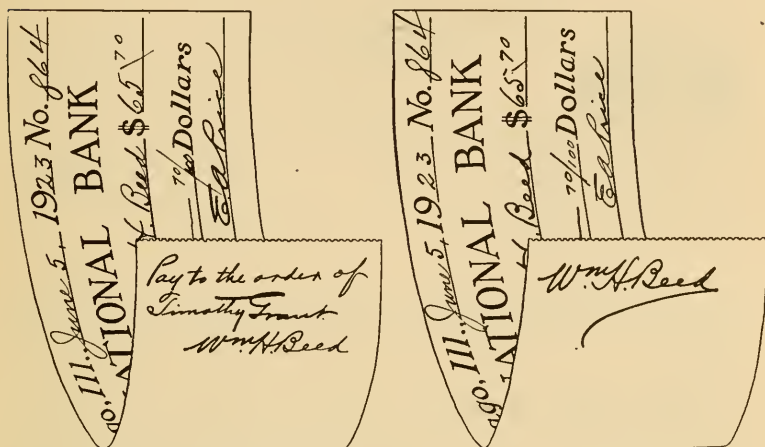 go, Ill., June 5, 1923 No. 864
ATIONAL BANK
H. Beed $65 70
70/100 Dollars
E A Price
Pay to the order of
Timothy Grant
Wm H. Beed
ago, Ill., June 5, 1923 No. 864
NATIONAL BANK
H. Beed $65 70
70/100 Dollars
E A Price
Wm H. Beed